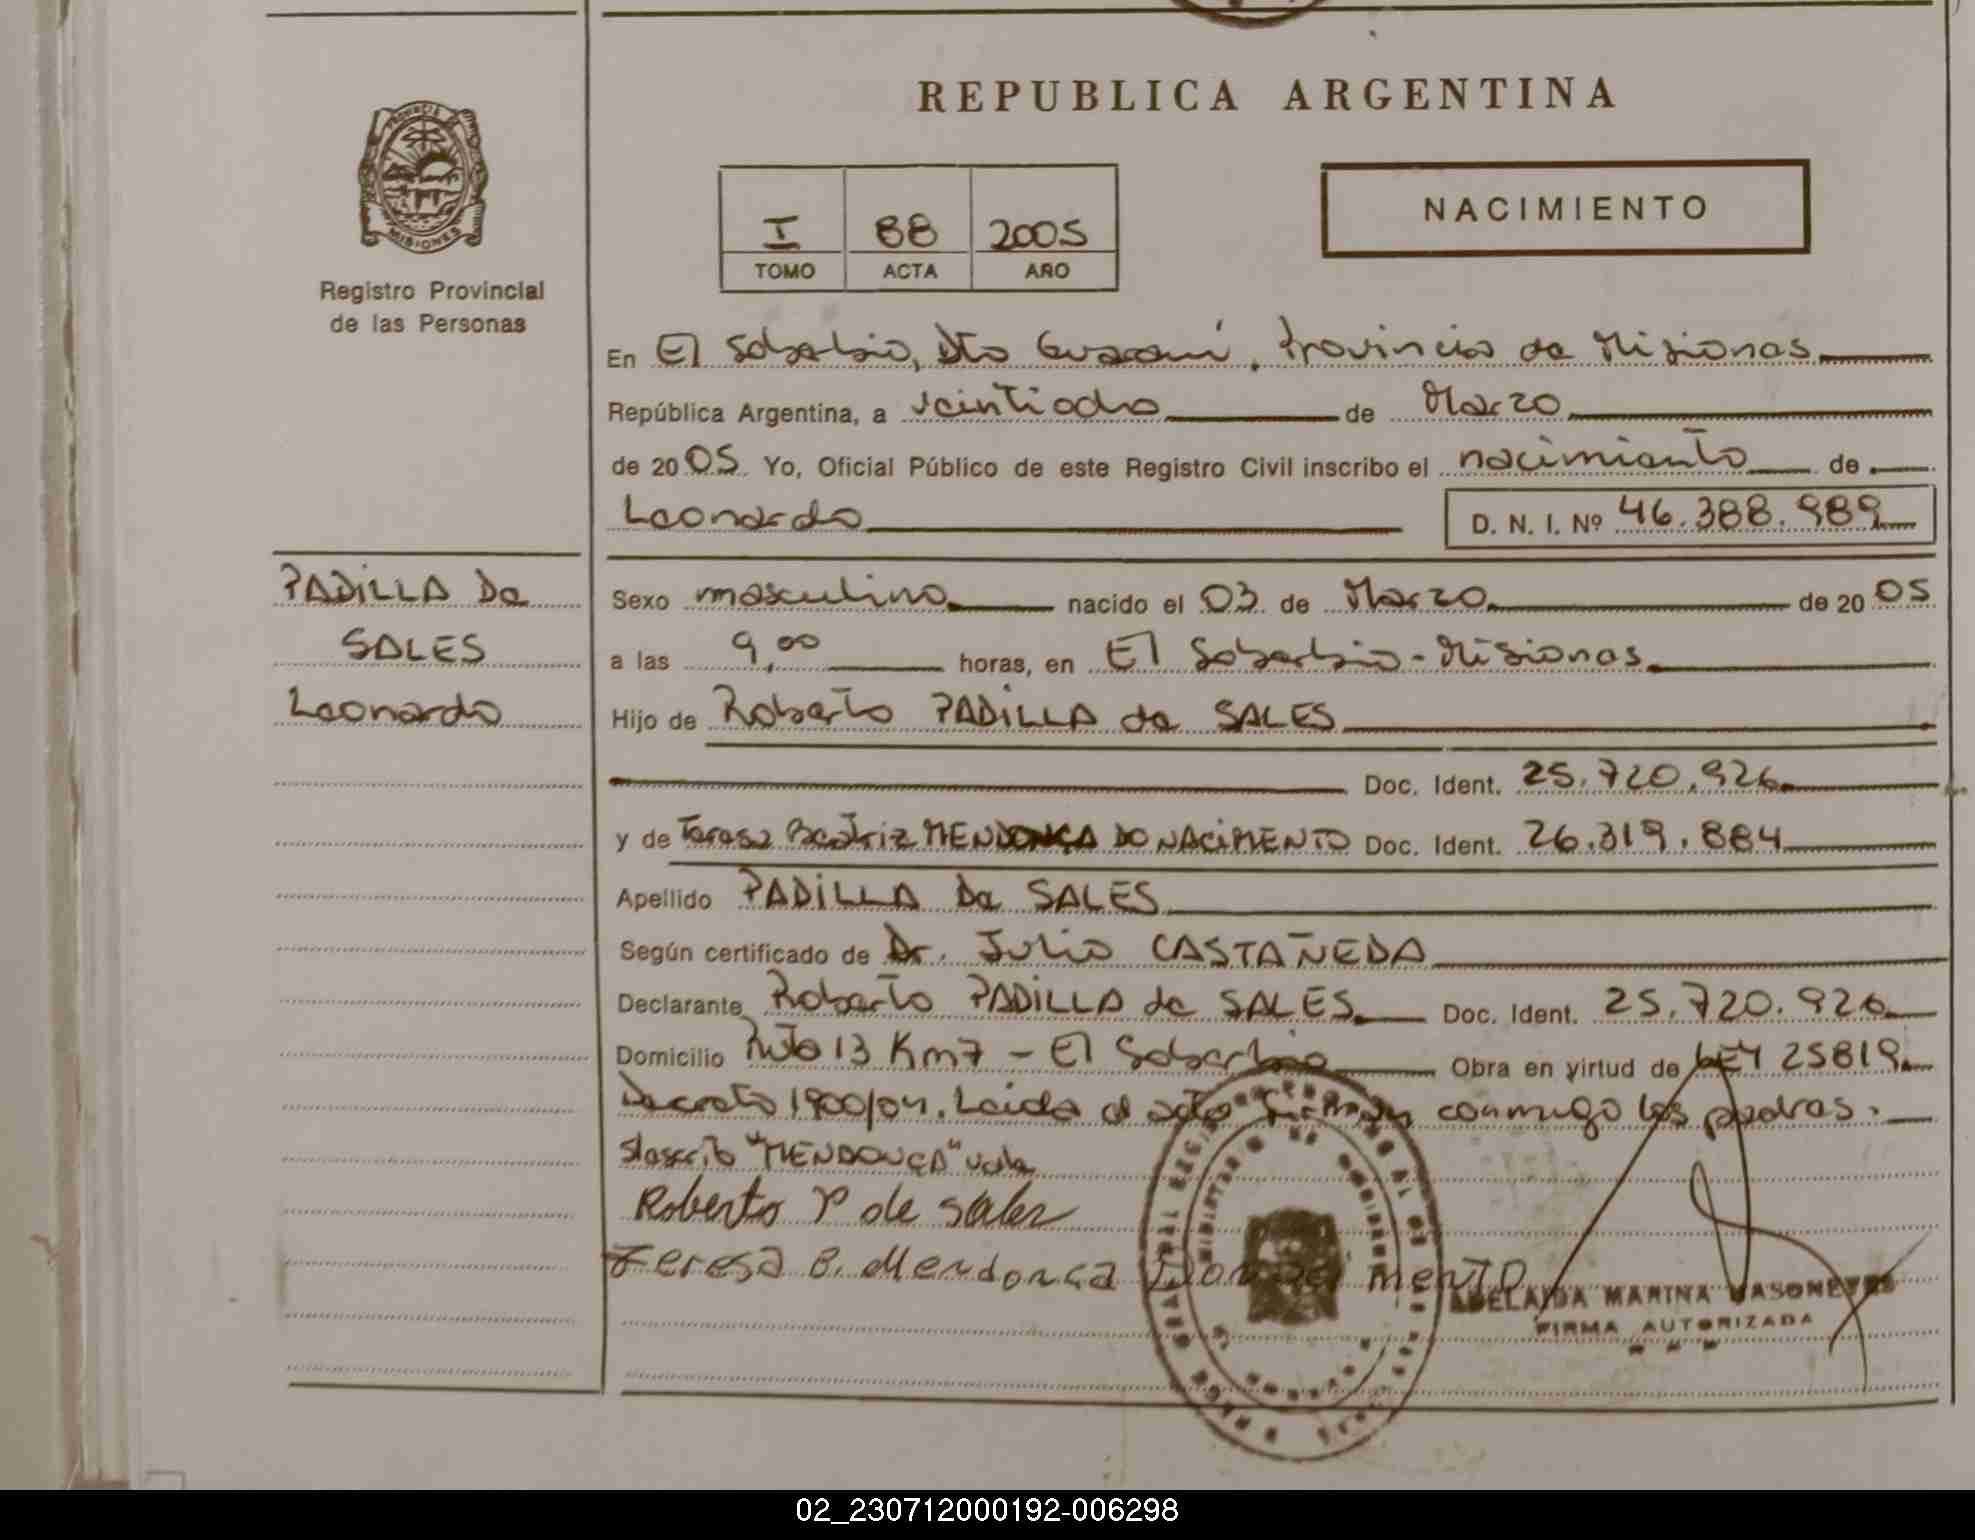 REPUBLICA ARGENTINA
PROVINCIA DE
MISIONES
Registro Provincial
de las Personas
I 88 2005
TOMO ACTA AÑO
NACIMIENTO
En El Soberbio, Dto Guaraní, Provincia de Misiones
República Argentina, a veintiocho de Marzo
de 2005 Yo, Oficial Público de este Registro Civil inscribo el nacimiento de
Leonardo D. N. I. Nº 46.388.989
PADILLA De
SALES
Leonardo
Sexo masculino nacido el 03 de Marzo de 2005
a las 9,00 horas, en El Soberbio - Misiones
Hijo de Roberto PADILLA de SALES
Doc. Ident. 25.720.926
y de Teresa Beatriz MENDONÇA DO NACIMENTO Doc. Ident. 26.319.884
Apellido PADILLA De SALES
Según certificado de Dr. Julio CASTAÑEDA
Declarante Roberto PADILLA de SALES Doc. Ident. 25.720.926
Domicilio Ruta 13 Km 7 - El Soberbio Obra en virtud de LEY 25819
Decreto 1900/04. Leida el acta firman conmigo los padres.
"MENDONÇA" vale
Roberto P de Sales
Teresa B. Mendonça
ADELAIDA MARINA
FIRMA AUTORIZADA
02_230712000192-006298